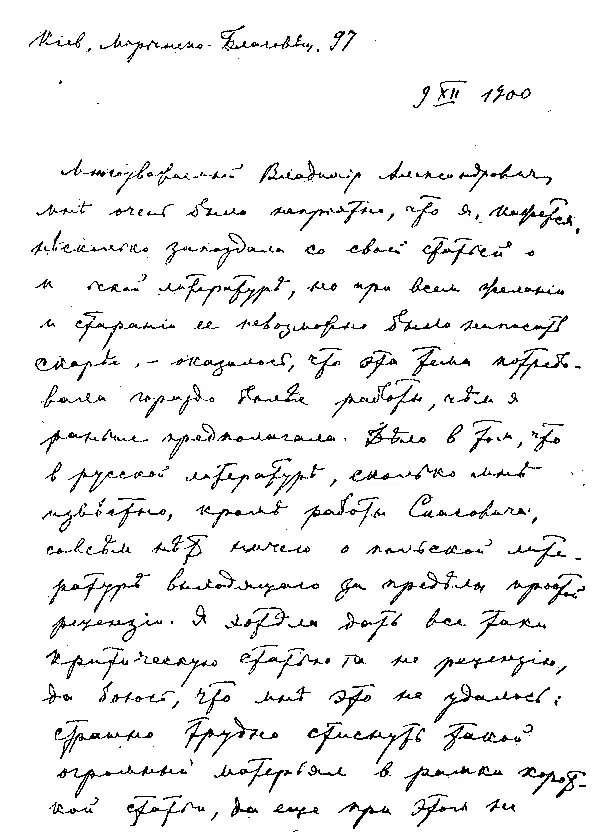 Кіев, Маріинско-Благовѣщ. 97
9 XII 1900
Многоуважаемый Владимір Александрович,
мнѣ очень было неприятно, что я, кажется,
нѣсколько запоздала со своей статьей о
литературѣ, но при всем желаніи
и стараніи ее невозможно было написать
скорѣе, – оказалось, что эта тема потребо-
вала гораздо больше работы, чѣм я
раньше предполагала. Дѣло в том, что
в русской литературѣ, сколько мнѣ
извѣстно, кромѣ работы Спасовича,
совсѣм нѣт ничего о польской лите-
ратурѣ выходящаго за предѣлы простой
рецензіи. Я хотѣла дать все таки
критическую статью а не рецензію,
да боюсь, что мнѣ это не удалось:
страшно трудно стиснуть такой
огромный матерьял в рамки корот-
кой статьи, да еще при этом не